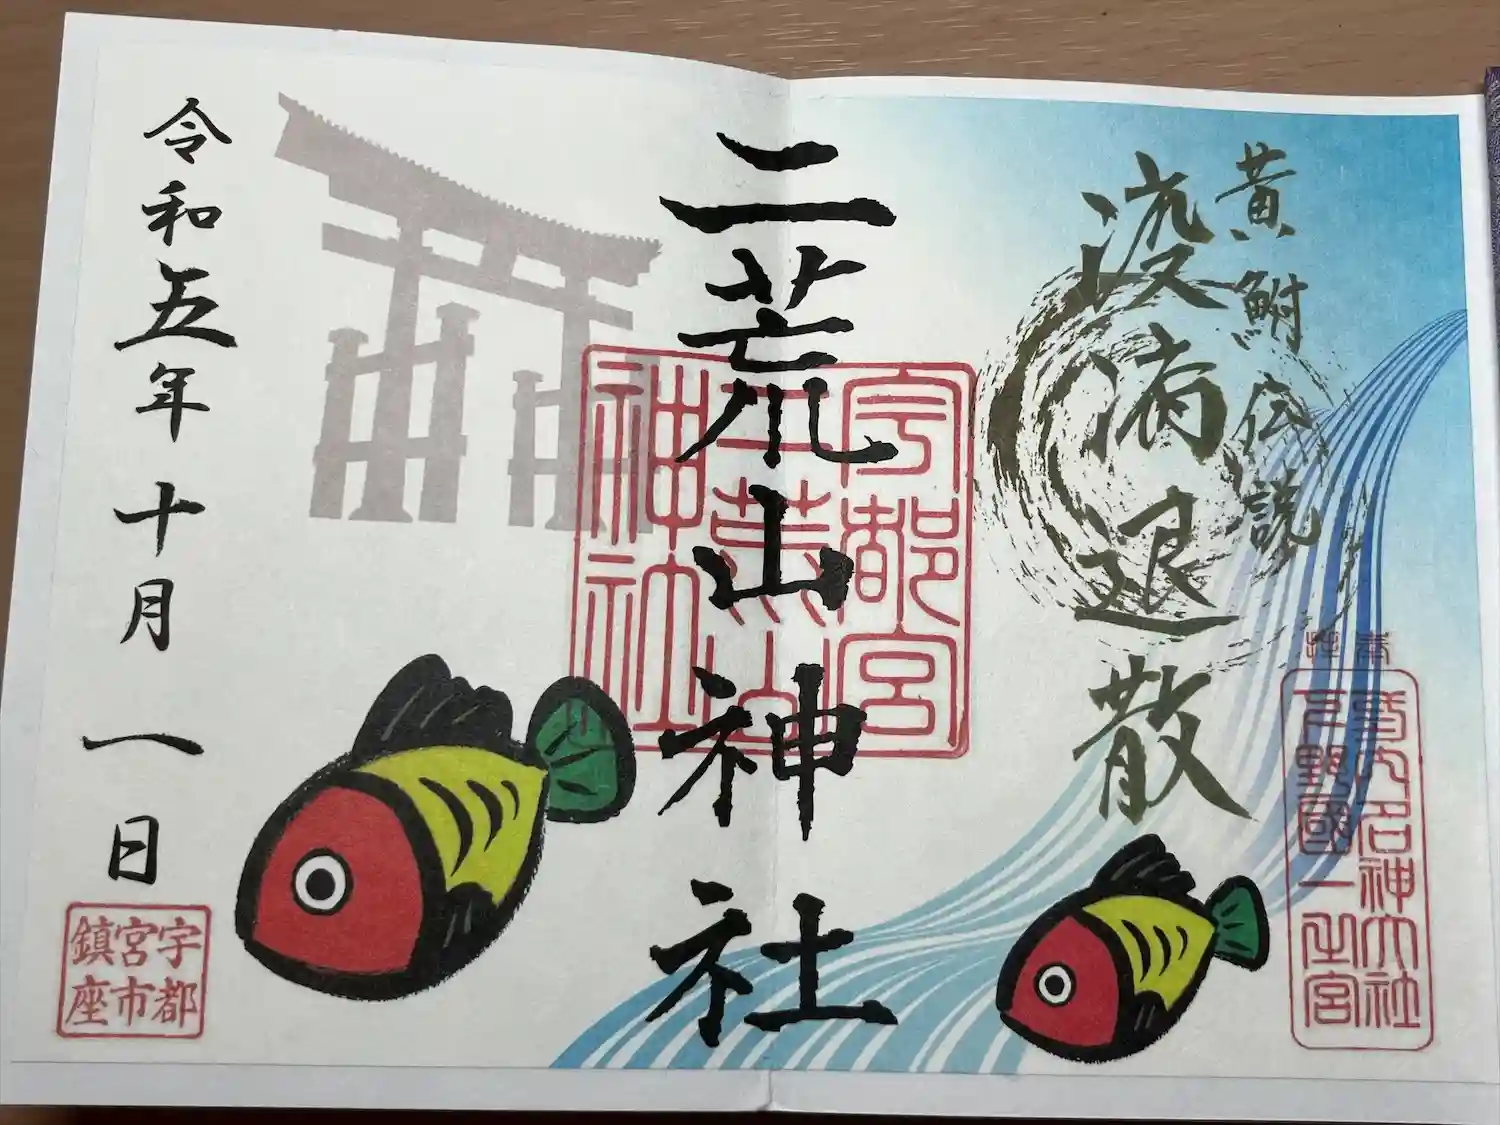 奉拝
式内名神大社
下野國一之宮
黄鮒伝説
疫病退散
二荒山神社
宇都宮
二荒山
神社
令和五年十月一日
宇都
宮市
鎮座